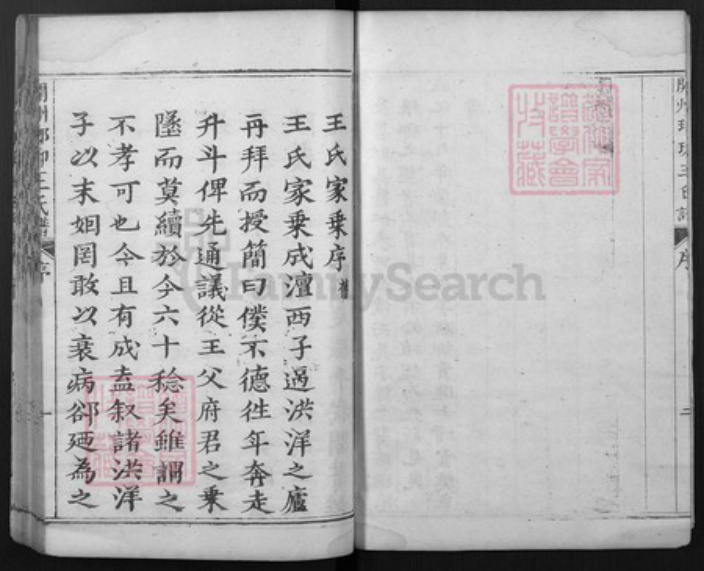 開州琅琊王氏譜
序
二
譜學會
收藏
王氏家乗序 舊
王氏家乗成澶西子過洪洋之廬
再拜而授簡曰僕不德徃年奔走
升斗俾先通議從王父府君之乗
墜而莫續於今六十稔矣雖謂之
不孝可也今且有成盍叙諸洪洋
子以末姻罔敢以衰病郤廼為之
序
一
FamilySearch